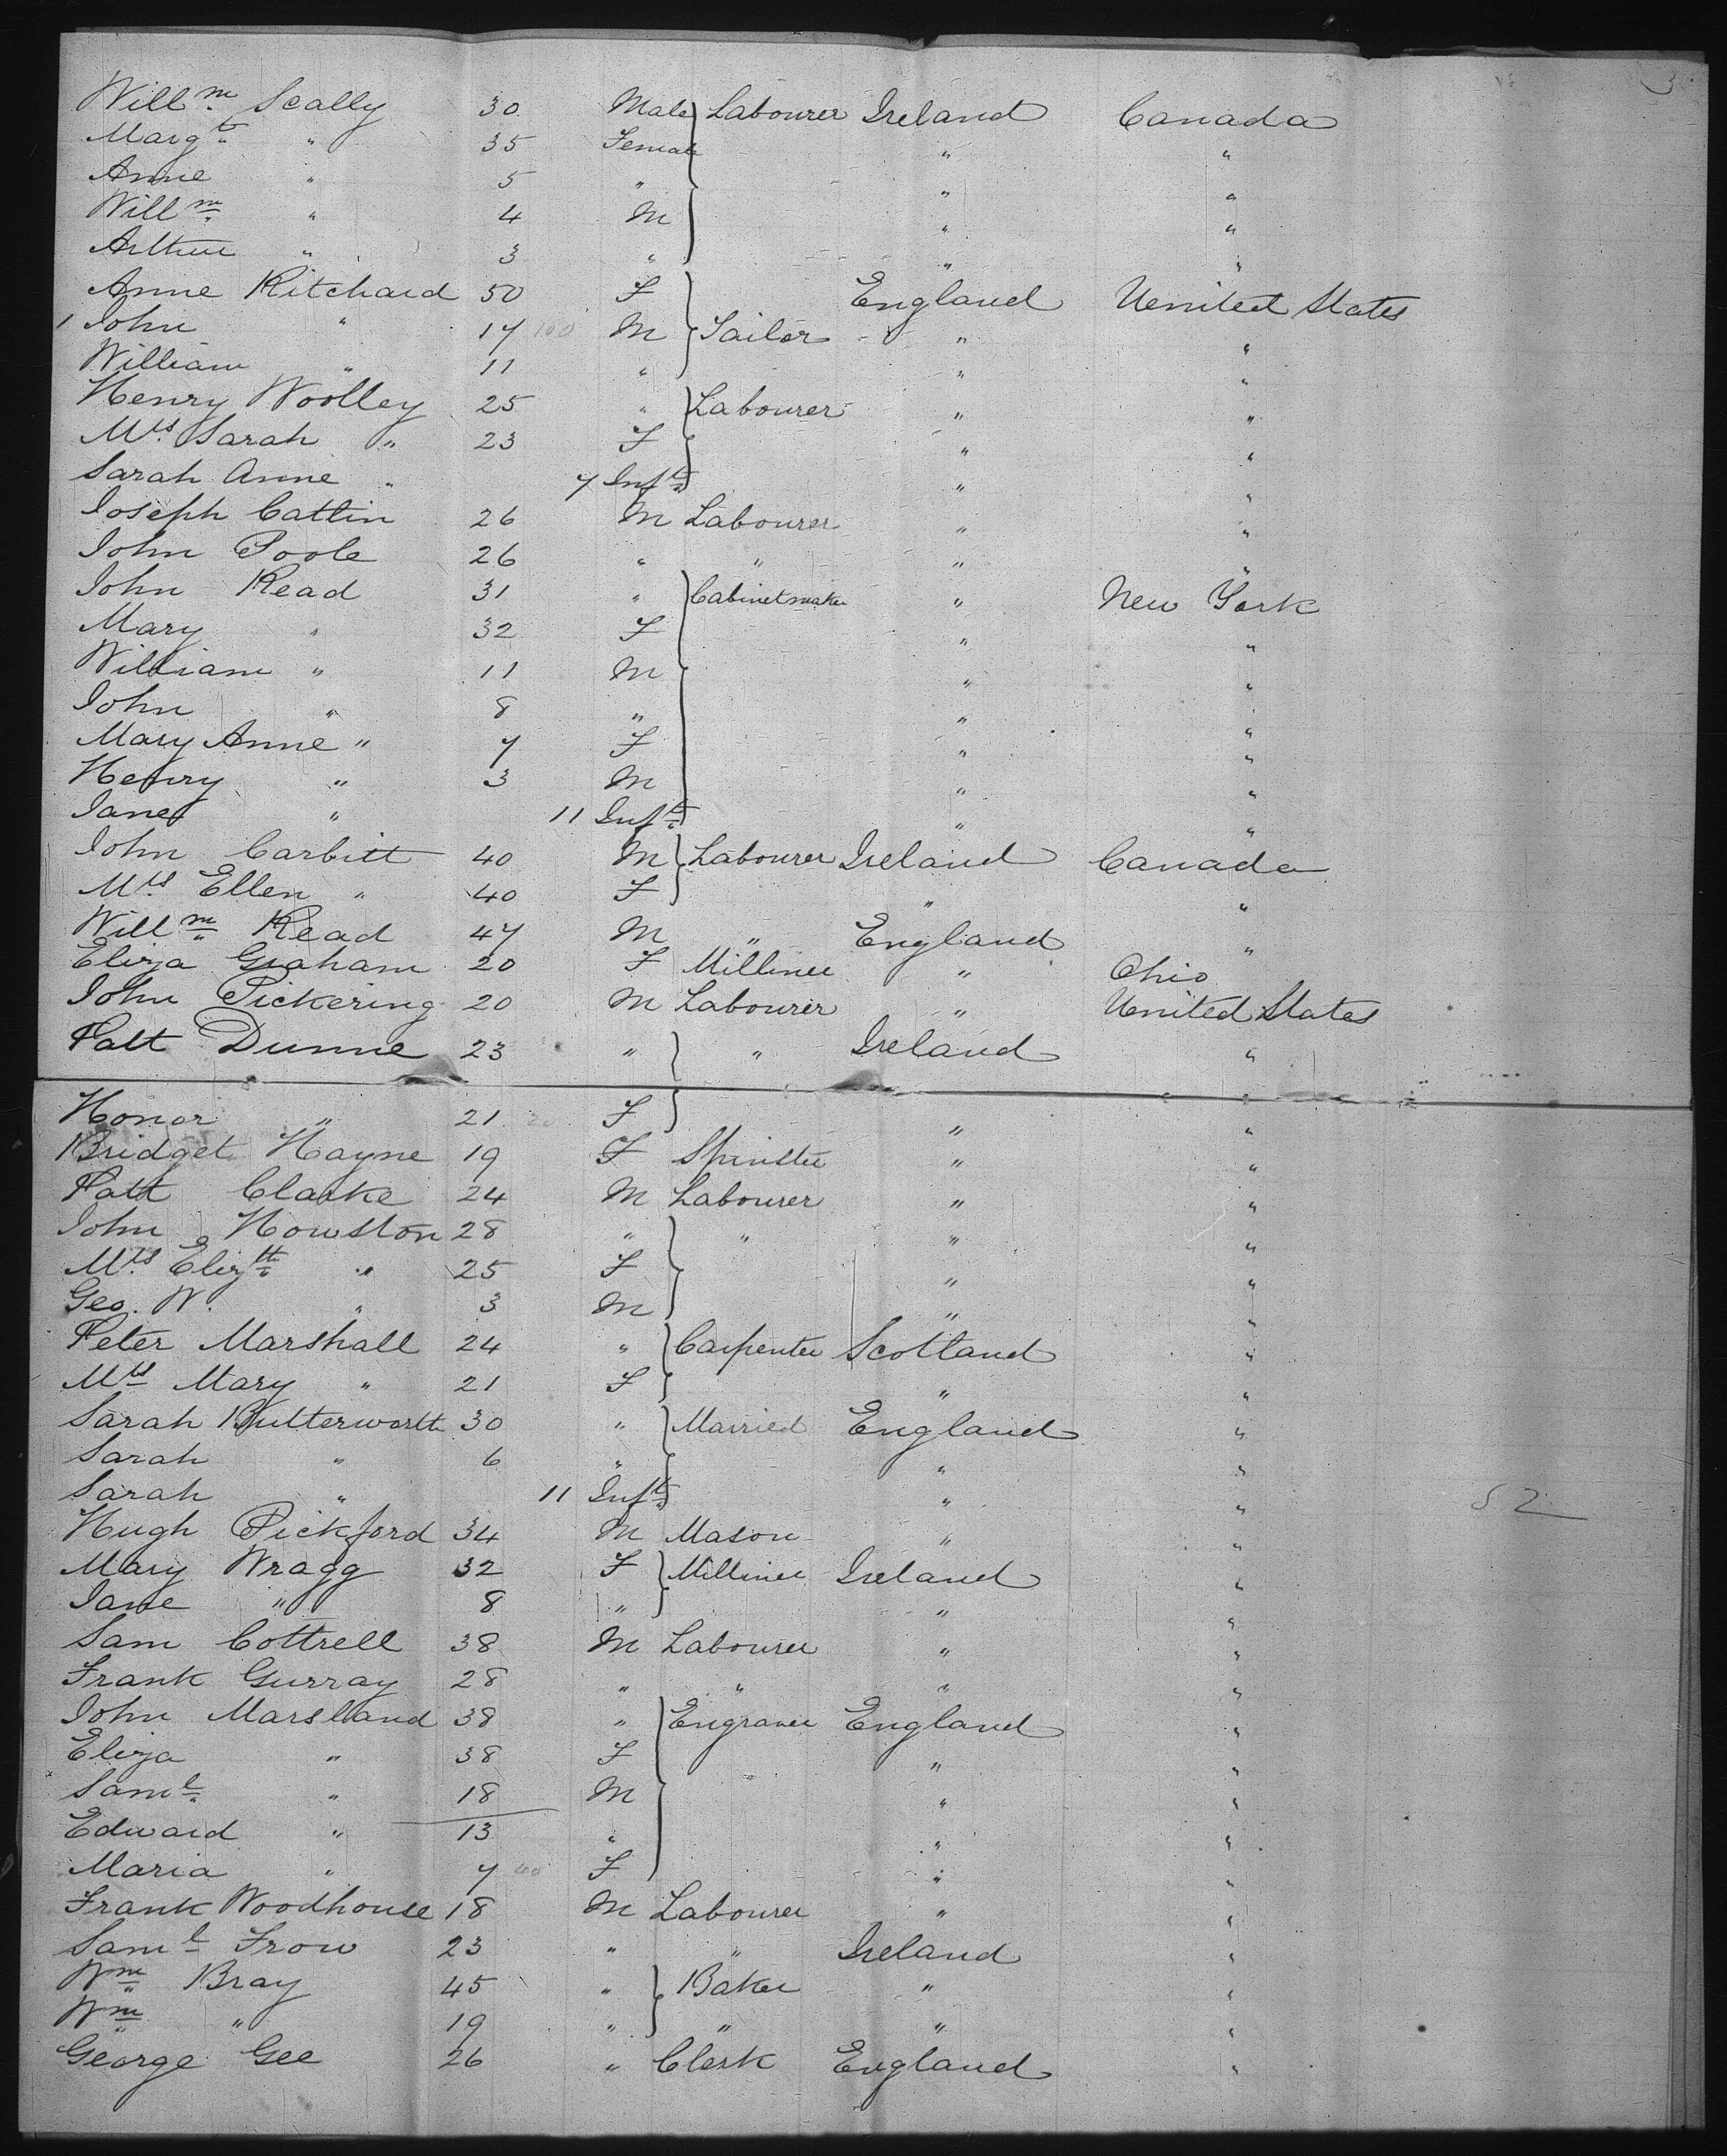 3
Willm Scally 30 Male Labourer Ireland Canada
Margt " 35 Female " "
Anne " 5 " " "
Willm " 4 M " "
Arthur " 3 " " "
Anne Ritchard 50 F England United States
1 John " 17 100 M Tailor " "
William " 11 " " "
Henry Woolley 25 " Labourer " "
Mrs Sarah " 23 F " "
Sarah Anne " 7 Inft " "
Joseph Catlin 26 M Labourer " "
John Poole 26 " " " "
John Read 31 " Cabinetmaker " New York
Mary " 32 F " "
William " 11 M " "
John " 8 " " "
Mary Anne " 7 F " "
Henry " 3 M " "
Jane " 11 Inft " "
John Corbitt 40 M Labourer Ireland Canada
Mrs Ellen " 40 F " "
Willm Read 47 M " England "
Eliza Graham 20 F Milliner " Ohio
John Pickering 20 M Labourer " United States
Patt Dunne 23 " " Ireland "
Honor " 21 20 F " "
Bridget Hayne 19 F Spinster " "
Patt Clarke 24 M Labourer " "
John Howston 28 " " " "
Mrs Elizth " 25 F " "
Geo. W. " 3 M " "
Peter Marshall 24 " Carpenter Scotland "
Mrs Mary " 21 F " "
Sarah Butterworth 30 " Married England "
Sarah " 6 " " "
Sarah " 11 Inft " "
52
Hugh Pickford 34 M Mason " "
Mary Wragg 32 F Milliner Ireland "
Jane " 8 " " "
Sam Cottrell 38 M Labourer " "
Frank Gurray 28 " " " "
John Marsland 38 " Engraver England "
Eliza " 38 F " "
Saml " 18 M " "
Edward " 13 " " "
Maria " 7 40 F " "
Frank Woodhouse 18 M Labourer " "
Saml Frow 23 " " Ireland "
Wm Bray 45 " Baker " "
Wm " 19 " " " "
George Gee 26 " Clerk England "